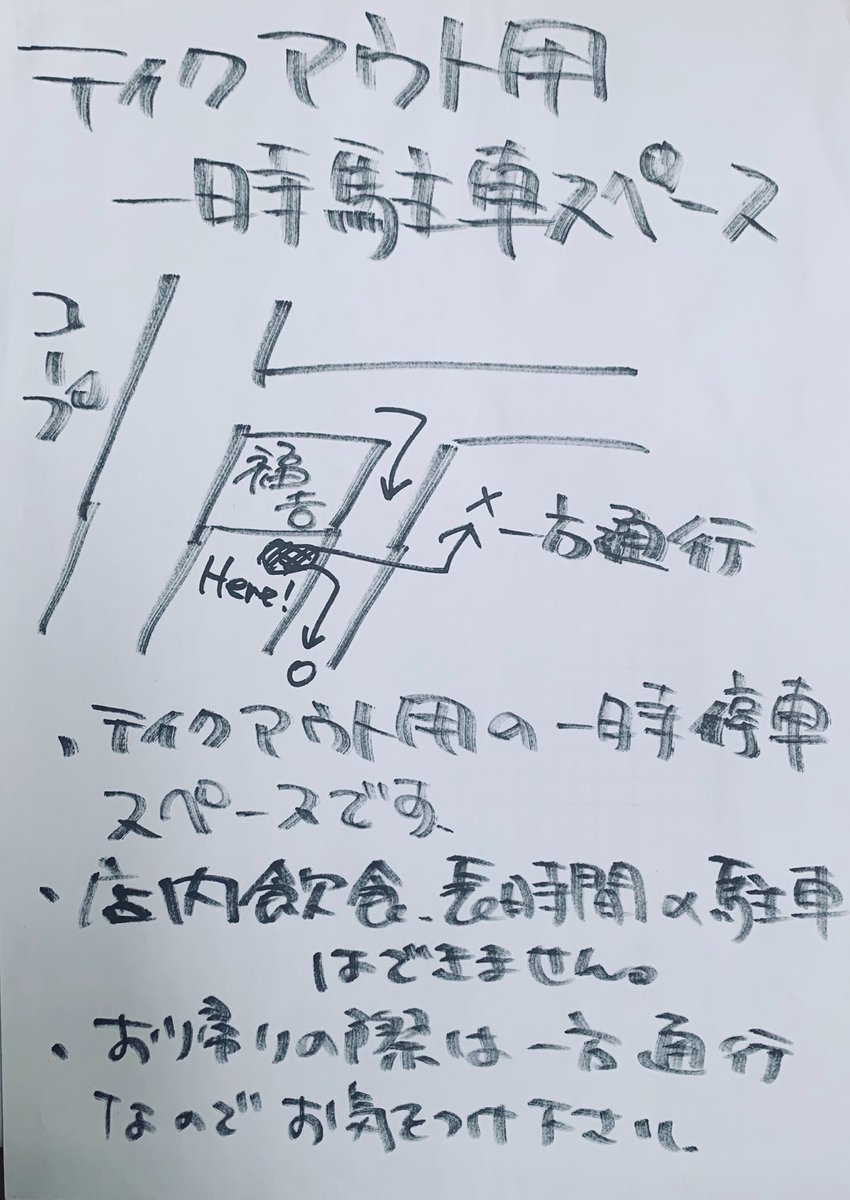 テイクアウト用
一時駐車スペース
コープ
福吉
Here!
×
一方通行
○
・テイクアウト用の一時停車
スペースです。
・店内飲食、長時間の駐車
はできません。
・お帰りの際は一方通行
なのでお気をつけ下さい。